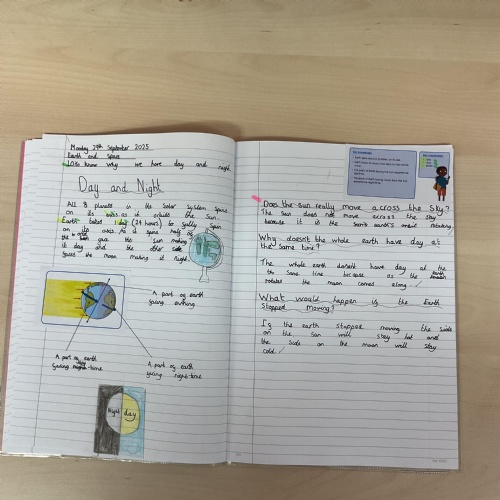 Monday 29th September 2025
Earth and Space
LO: to know why we have day and night.
Day and Night
All 8 planets in the Solar System spins
on its axis as it orbits the Sun.
Earth takes 1 day (24 hours) to fully spin
on its axis. As it spins half of
the sun making
it day and the other side
faces the moon making it night.
A part of earth
facing evening
A part of earth
facing time
A part of earth
facing night-time
Night day
Does the sun really move across the Sky?
The Sun does not move across the sky
because it is the Earth rotating.
Why doesn't the whole earth have day at
the same time?
The whole earth doesn't have day at the
same time because as the
rotates the moon comes along.
What would happen if the Earth
Stopped moving?
If the earth stopped moving the side
on the Sun will stay hot and
the side on the moon will stay
cold.